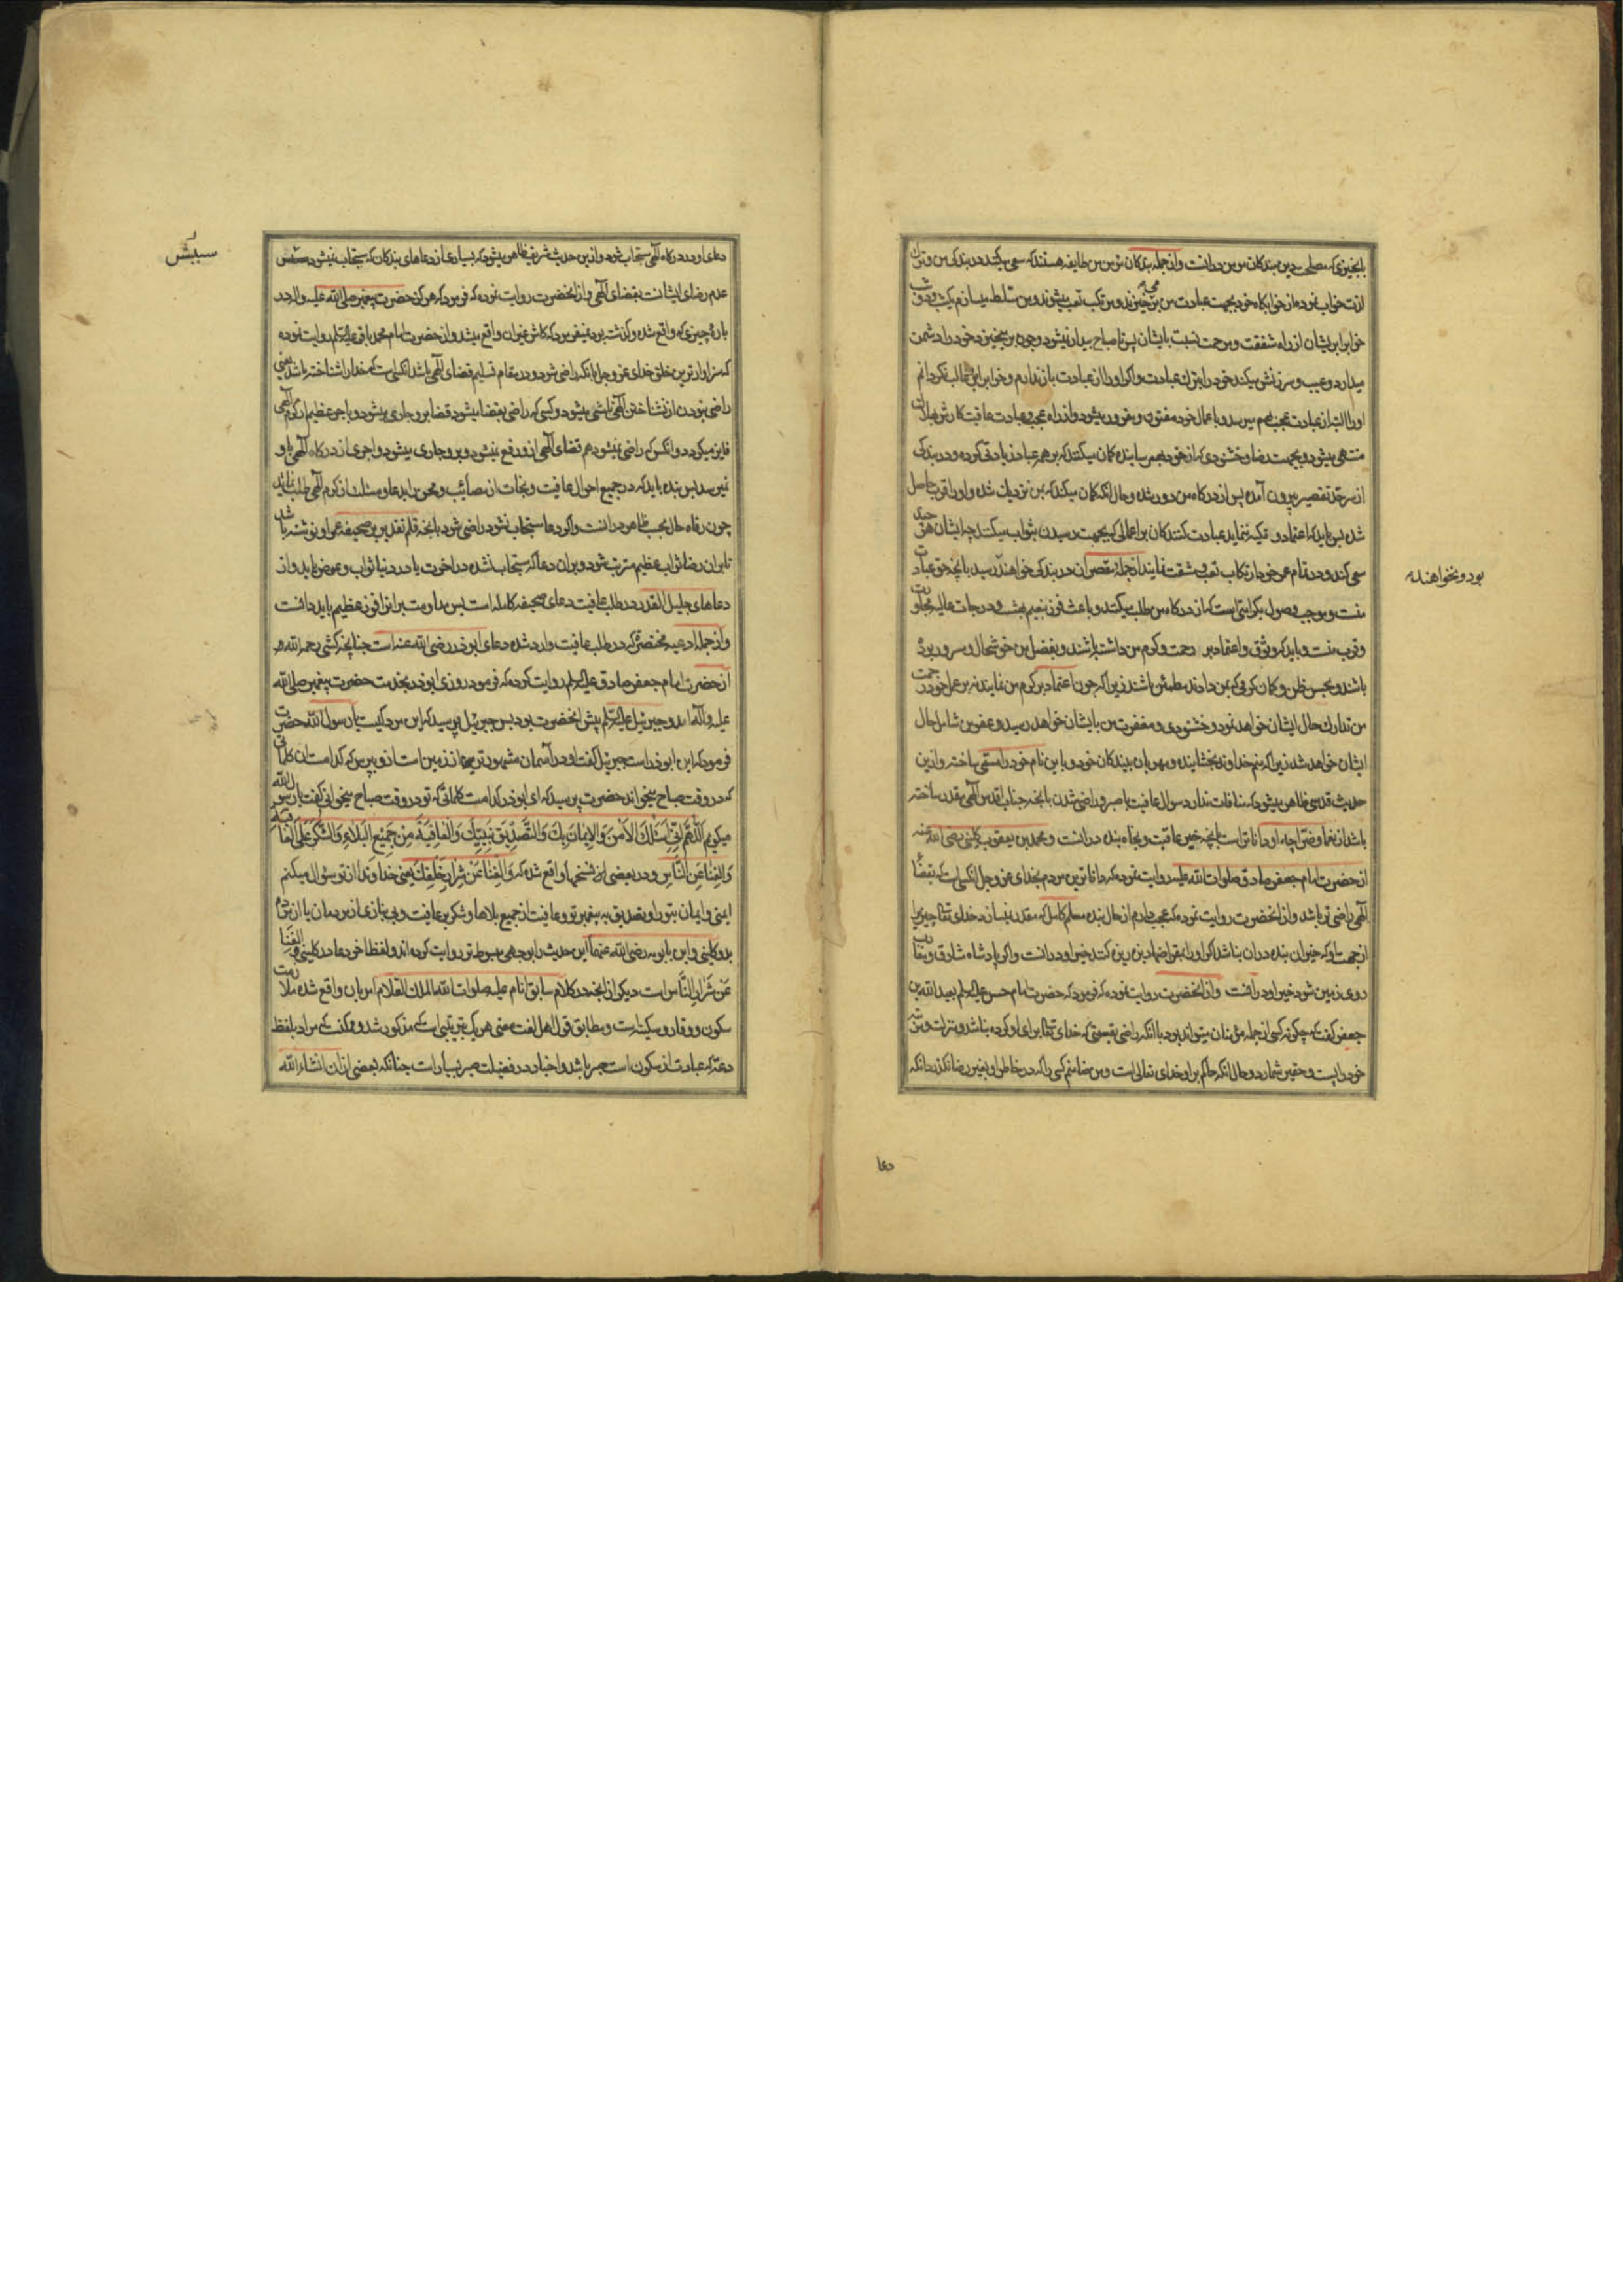 بانچیزی که مصلح دین بندکان مومن در آنست و از جمله بندکان مومن من طایفه هستند که سعی میکنند در بندکی من و ترک
لذت خواب نموده از خوابکاه خود بجهت عبادت من بر میخیزند و مرتکب تعب میشوند و من مسلط میسازم یکشب و دو شب
خواب را بر ایشان از راه شفقت و مرحمت نسبت بایشان پس تا صباح بیدار نمیشود و چون بر میخیزد خود را دشمن
میدارد و عیب و سرزنش میکند خود را بترک عبادت و اکر او را از عبادت باز ندارم و خواب را برو غالب نکردانم
او را البته از عبادت عجب بهم میرسد و باعمال خود مفتون و مغرور میشود و از راه عجب و عبادت عاقبت کارش بهلاکت
منتهی میشود و بجهت رضا و خشنودی که از خود بهم رسانیده کمان میکند که بر همه عباد زیادتی کرده و در بندکی
از سرحد تقصیر بیرون آمده پس از درکاه من دور شده و حال آنکه کمان میکند که بمن نزدیک شده و او را قرب حاصل
شده پس باید که اعتماد و تکیه ننمایند عبادت کنندکان بر اعمالی که بجهت رسیدن بثواب میکنند چه ایشان هر چند
سعی کنند و در تمام عمر خود ارتکاب تعب و مشقت نمایند از جمله مقصران در بندکی خواهند رسید بانچه حق عبادت
منست و موجب وصول بکرامتی است که از درکاه من طلب میکنند و باعث فوز بنعیم بهشت و درجات عالیه مجاورت
و قرب منست و باید که وثوق و اعتماد بر رحمت و کرم من داشته باشند و بفضل من خوشحال و مسرور بوده
باشند و بحسن ظن و کمان نیکویی که بمن دارند مطمئن باشند زیرا که چون اعتماد بر کرم من نمایند نه بر عمل خود رحمت
من تدارک حال ایشان خواهد نمود و خشنودی و مغفرت من بایشان خواهد رسید و عفو من شامل حال
ایشان خواهد شد زیرا که منم خداوند بخشاینده و مهربان ببندکان خود و باین نام خود را مسمی ساخته و ازین
حدیث قدسی ظاهر میشود که منافات ندارد سوال عافیت با صبر و راضی شدن بانچه جناب اقدس آلهی مقدر ساخته
باشد از نعما و ضرا چه او داناتر است بانچه خیر عاقبت و نجاه بنده در آنست و محمد بن یعقوب کلینی رضی الله عنه
از حضرت امام جعفر صادق صلوات الله علیه روایت نموده که داناترین مردم بخدای عز و جل آنکسی است که بقضاء
آلهی راضی تر باشد و از آنحضرت روایت نموده که عجب دارم از حال بنده مسلم کامل که مقدر نمیسازد خدای تعالی چیزیرا
از جهت او که خیر آن بنده در آن نباشد اکر او را بمقراضها ریزه ریزه کنند خیر او در آنست و اکر پادشاه مشارق و مغارب
روی زمین شود خیر او در آنست و از آنحضرت روایت نموده که فرمود که حضرت امام حسن علیه السلام بعبدالله بن
جعفر کفت که چکونه کسی از جمله مؤمنان میتواند بود با آنکه راضی بقسمتی که خدای تعالی برای او کرده نباشد و منزلت و مرتبه
خود را پست و حقیر شمارد و حال آنکه حاکم بر او خدای تعالی است و من ضامنم کسی را که در خاطر او بغیر رضا نکذرد آنکه
بود و نخواهند
دعا
دعای او در درکاه آلهی مستجاب شود و ازین حدیث شریف ظاهر میشود که بسیاری از دعاهای بندکان که مستجاب نمیشود
سببش
عدم رضای ایشانست بقضای آلهی و از آنحضرت روایت نموده که فرمود که هرکز حضرت پیغمبر صلی الله علیه و آله در
باره چیزی که واقع شده و کذشته بود نمیفرمود که کاش بغیر آن واقع میشد و از حضرت امام محمد باقر علیه السلام روایت نموده
که سزاوارترین خلق خدای عز و جل بانکه راضی شود و در مقام تسلیم قضای آلهی باشد آنکسی است که خدا را شناخته باشد یعنی
راضی بودن از شناختن آلهی ناشی میشود و کسی که راضی بقضا میشود قضا برو جاری میشود و باجر عظیم از کرم آلهی
فایز میکردد و آنکس که راضی نمیشود هم قضای آلهی ازو رفع نمیشود و برو جاری میشود و اجری از درکاه آلهی باو
نمیرسد پس بنده باید که در جمیع احوال عافیت و نجات از مصائب و محن را بدعا و مسئلت از کرم آلهی طلب نماید
چون رفاه حال بحسب ظاهر در آنست و اکر دعا مستجاب نشود راضی شود بانچه قلم تقدیر بر صحیفه عمر او نوشته باشد
تا بر آن رضا ثواب عظیم مترتب شود و بر آن دعا که مستجاب نشده در آخرت یا در دنیا ثواب و عوض یابد و از
دعاهای جلیل القدر در طلب عافیت دعای صحیفه کامله است پس مداومت بر آنرا فوز عظیم باید دانست
و از جمله ادعیه مختصره که در طلب عافیت وارد شده دعای ابوذر رضی الله عنه است چنانچه کشی رحمه الله
از حضرت امام جعفر صادق علیه السلام روایت کرده که فرمود روزی ابوذر بخدمت حضرت پیغمبر صلی الله
علیه و آله آمد و جبرئیل علیه السلام پیش آنحضرت بود پس جبرئیل پرسید که این مرد کیست یا رسول الله حضرت
فرمود که این ابوذر است جبرئیل کفت او در آسمان مشهورتر از زمین است ازو بپرس که کدامست آن کلماتی
که در وقت صباح میخواند حضرت پرسید که ای ابوذر کدامست کلماتی که تو در وقت صباح میخوانی کفت یا رسول الله
میکویم اَللّٰهُمَّ اِنّی اَسْئَلُكَ الْاَمْنَ وَ الْاِیمَانَ بِكَ وَ التَّصْدِیقَ بِنَبِیِّكَ وَ الْعَافِیَةَ مِنْ جَمِیعِ الْبَلَاءِ وَ الشُّكْرَ عَلَی الْعَافِیَةِ
وَ الْغِنَا عَنِ النَّاسِ و در بعضی از نسخها واقع شده که وَ الْغِنَا عَنْ شِرَارِ خَلْقِكَ یعنی خداوندا از تو سؤال میکنم
ایمنی و ایمان بتو را و تصدیق به پیغمبر تو و عافیت از جمیع بلاها و شکر بر عافیت و بی نیازی از مردمان یا از مردم
بد و کلینی و ابن بابویه رضی الله عنهما این حدیث را بوجهی مبسوط تر روایت کرده اند و لفظ آخر دعا در کلینی وَ الْغِنَا
عَنْ شِرَارِ النَّاسِ است دیکر از آنچه در کلام سابق امام علیه صلوات الله الملک العلام امر بان واقع شده ملازمت
سکون و وقار و سکینه است و مطابق قول اهل لغت معنی هر یک قریب است که مذکور شد و ممکنست که مراد بلفظ
دعة که عبارت از سکون است صبر باشد و اخبار در فضیلت صبر بسیار است چنانکه بعضی از آن انشاء الله